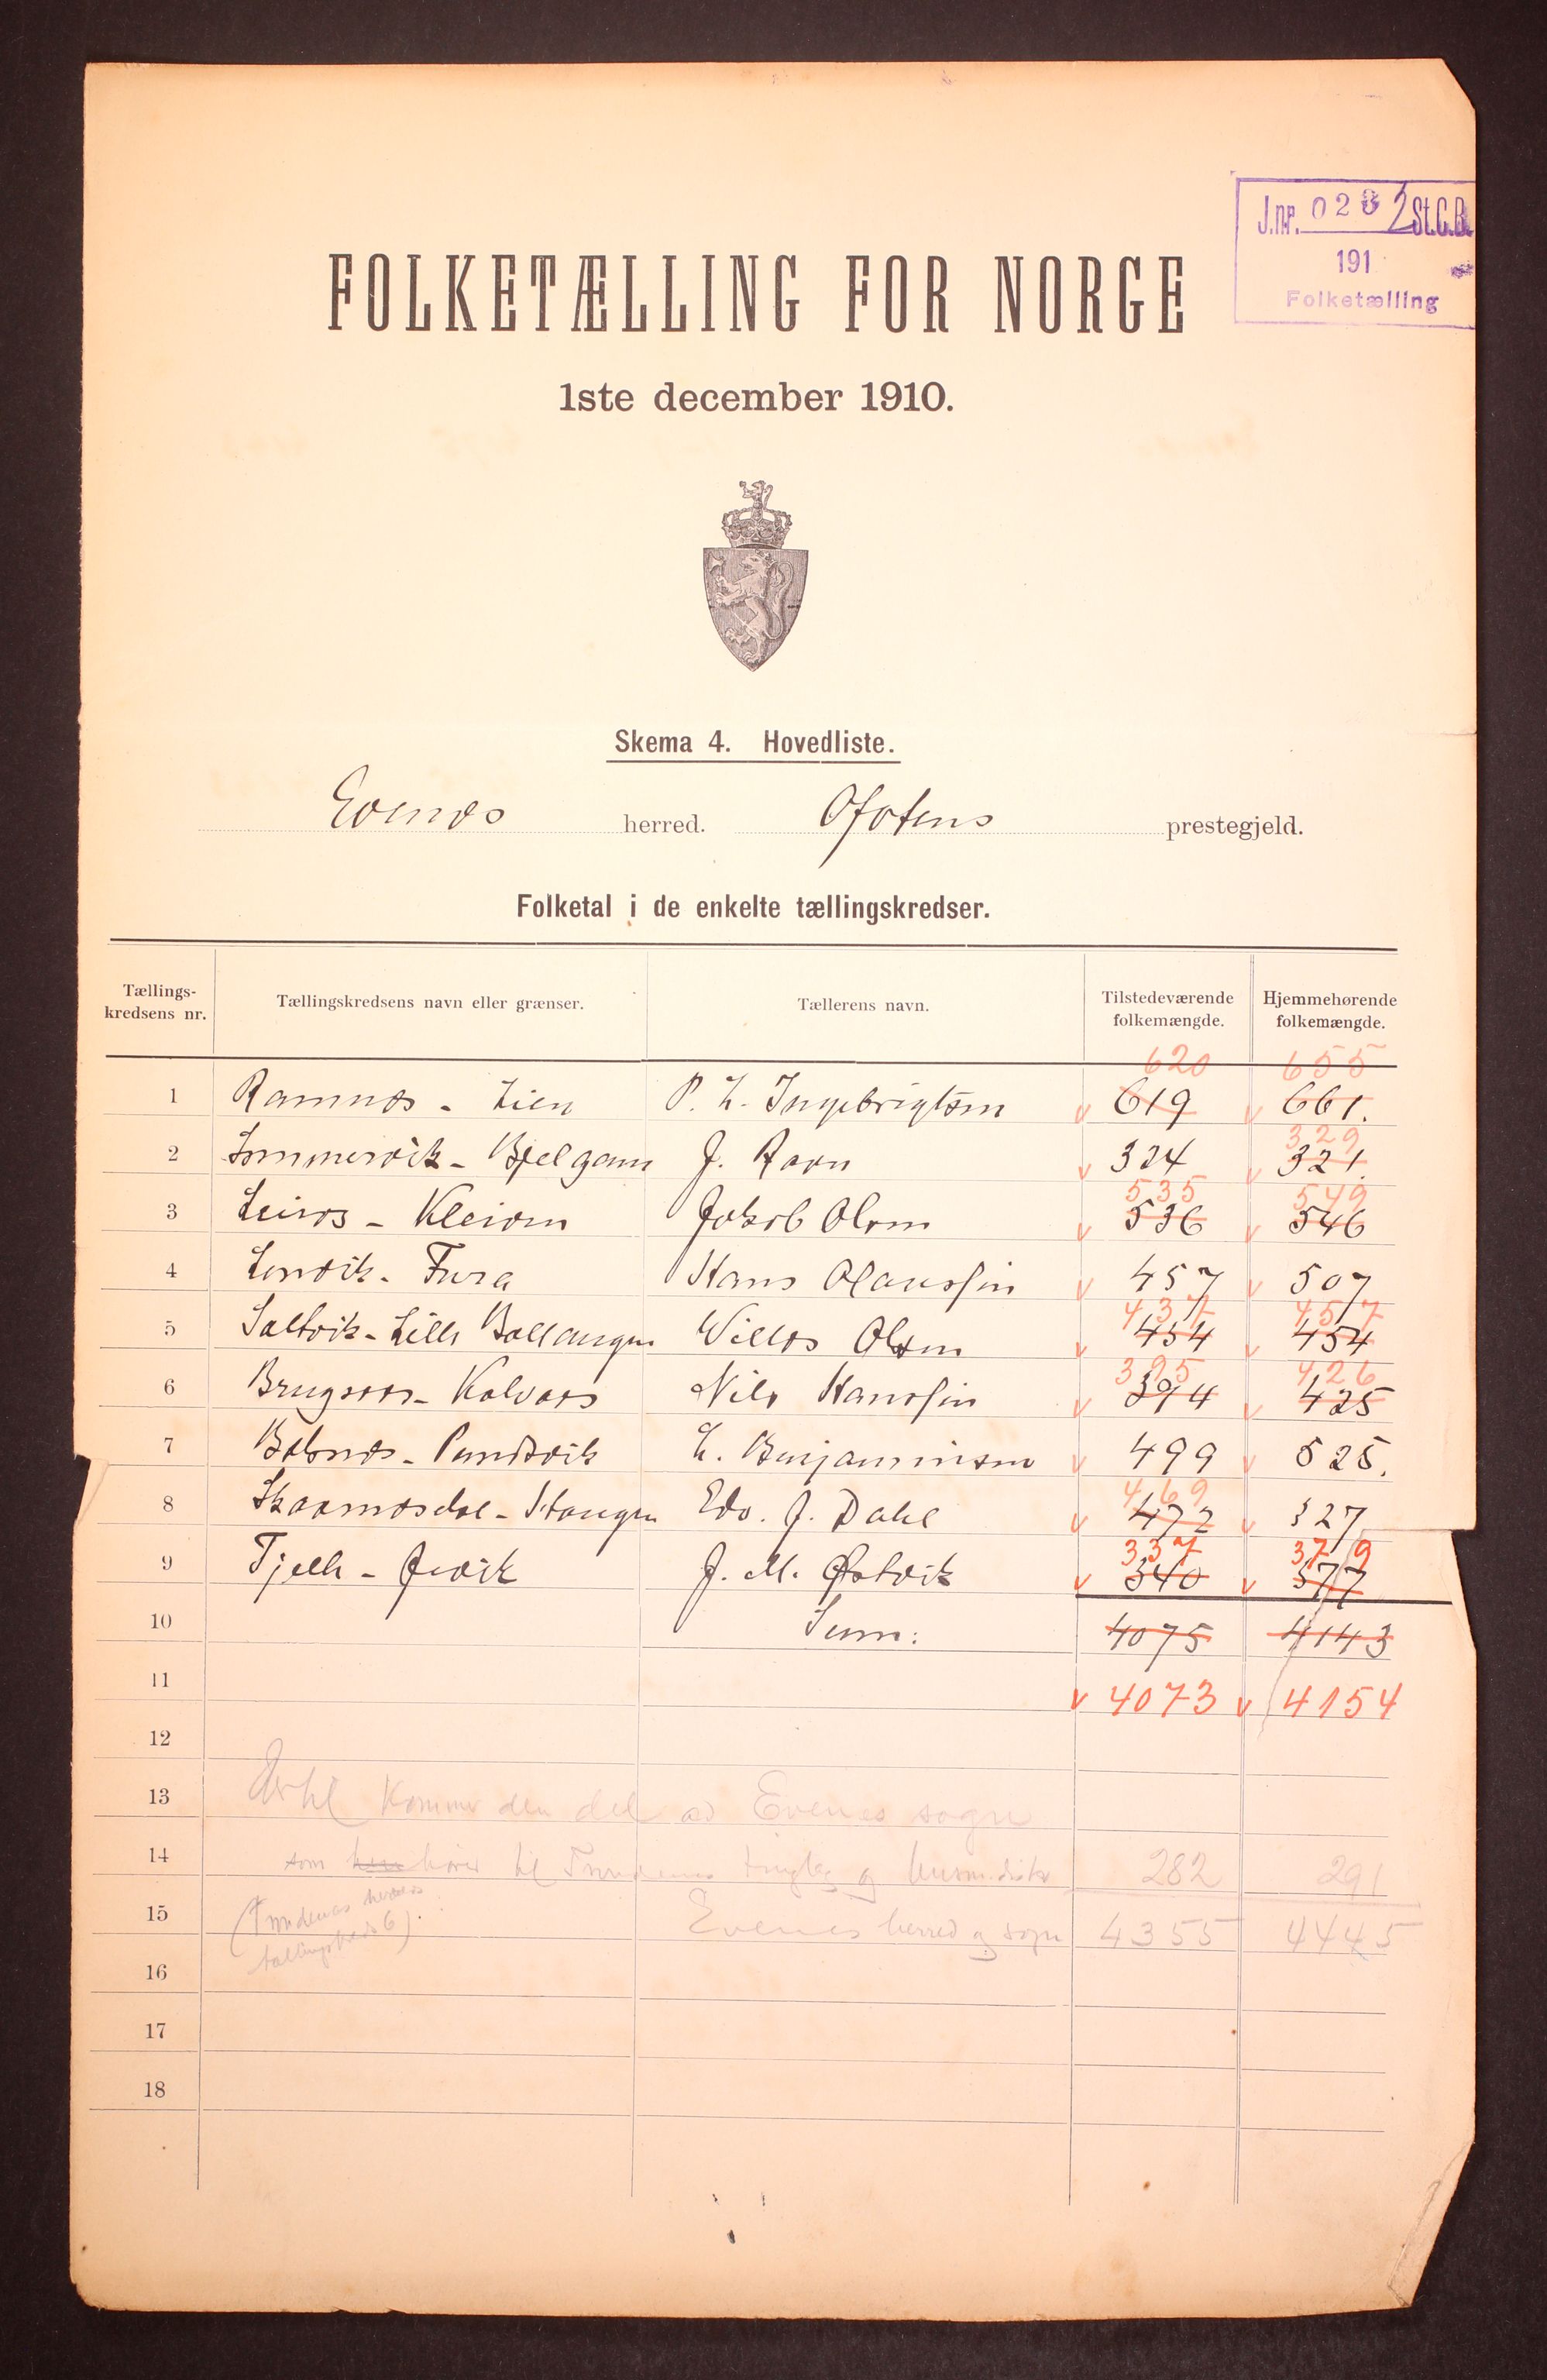 J.nr. 0232 St.C.B.
191
Folketælling
FOLKETÆLLING FOR NORGE
1ste december 1910.
Skema 4. Hovedliste.
Evenes herred. Ofotens prestegjeld.
Folketal i de enkelte tællingskredser.
Tællings-kredsens nr. Tællingskredsens navn eller grænser. Tællerens navn. Tilstedeværende folkemængde. Hjemmehørende folkemængde.
620 655
1 Ramnes - Lien P. L. Ingebrigtsen 619 661.
329
2 J. Ravn 324 321.
535 549
3 Leiros - Kleiven Jakob Olsen 536 546
4 Lenvik - Fura Hans Olaussen 457 507
437 457
5 Saltvik - Lille Ballangen Olsen 454 454
395 426
6 Kalvaas Nils Hanssen 394 425
7 L. Benjaminsen 499 525.
469
8 Edv. J. Dahl 472 327
337 379
9 J. M. Østvik 340 377
10 Sum: 4075 4143
11 4073 4154
12
13 kommer den del av Evenes sogn
14 som hører til 282 291
15 Evenes herred og sogn 4355 4445
16
17
18